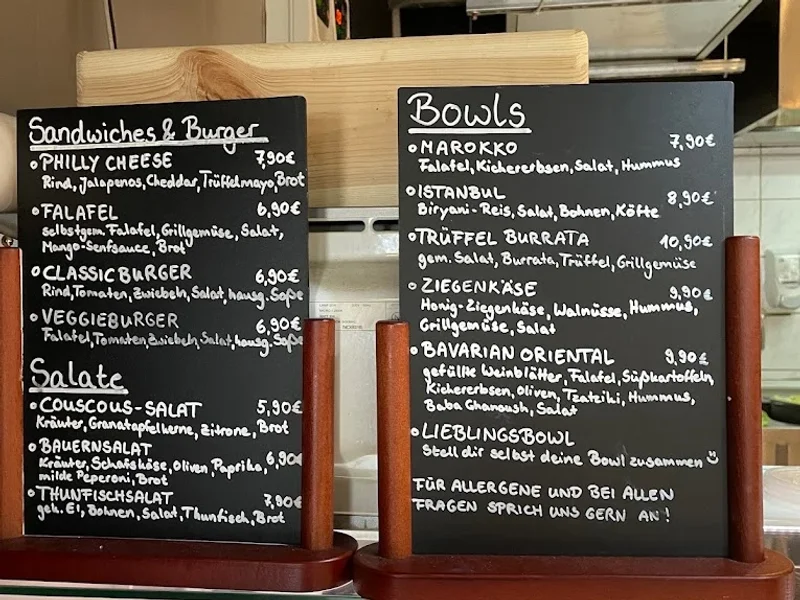 Sandwiches & Burger
PHILLY CHEESE 7,90€
Rind, Jalapenos, Cheddar, Trüffelmayo, Brot
FALAFEL 6,90€
selbstgem. Falafel, Grillgemüse, Salat,
Mango-Senfsauce, Brot
CLASSIC BURGER 6,90€
Rind, Tomaten, Zwiebeln, Salat, hausg. Soße
VEGGIEBURGER 6,90€
Falafel, Tomaten, Zwiebeln, Salat, hausg. Soße
Salate
COUSCOUS-SALAT 5,90€
Kräuter, Granatapfelkerne, Zitrone, Brot
BAUERNSALAT
Kräuter, Schafskäse, Oliven, Paprika, 6,90€
milde Peperoni, Brot
THUNFISCHSALAT 7,90€
gek. EI, Bohnen, Salat, Thunfisch, Brot
Bowls
MAROKKO 7,90€
Falafel, Kichererbsen, Salat, Hummus
ISTANBUL 8,90€
Biryani-Reis, Salat, Bohnen, Köfte
TRÜFFEL BURRATA 10,90€
gem. Salat, Burrata, Trüffel, Grillgemüse
ZIEGENKÄSE 9,90€
Honig-Ziegenkäse, Walnüsse, Hummus,
Grillgemüse, Salat
BAVARIAN ORIENTAL 9,90€
gefüllte Weinblätter, Falafel, Süßkartoffeln,
Kichererbsen, Oliven, Tzatziki, Hummus,
Baba Ghanoush, Salat
LIEBLINGSBOWL
Stell dir selbst deine Bowl zusammen
FÜR ALLERGENE UND BEI ALLEN
FRAGEN SPRICH UNS GERN AN!